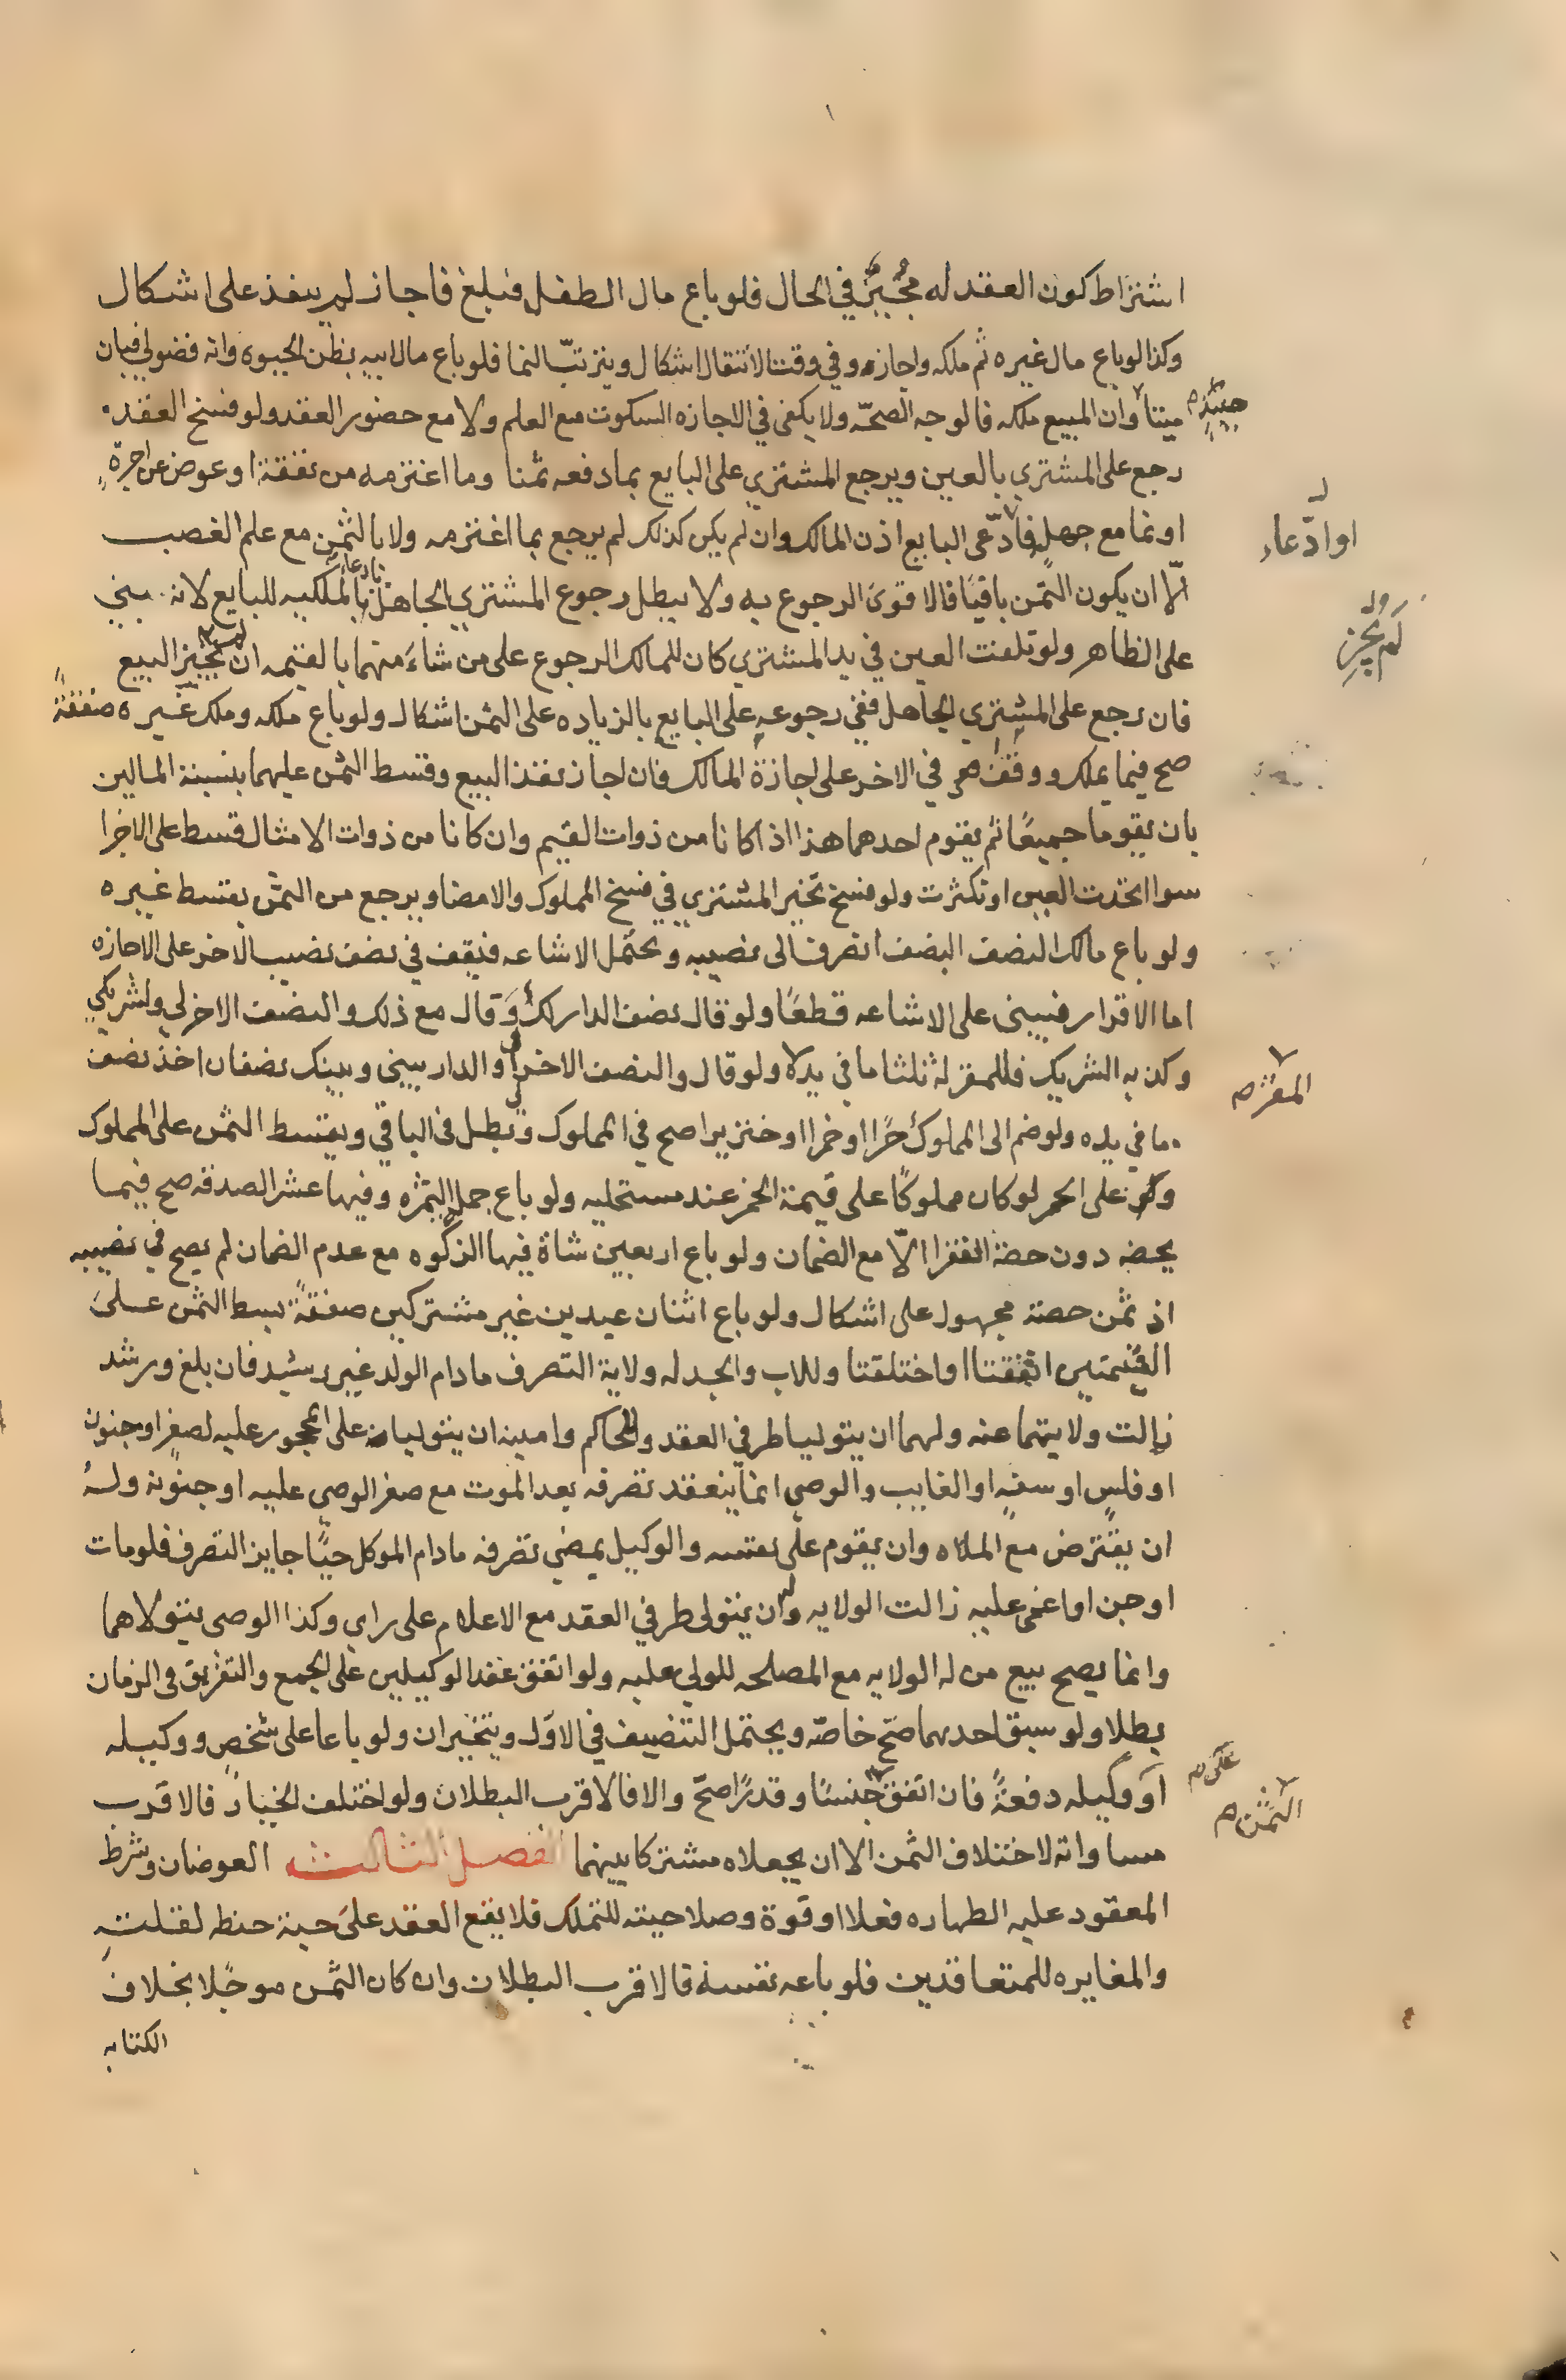 اشتراط كون العقد له مجيزٌ في الحال فلو باع مال الطفل فبلغ فاجاز لم ينفذ على اشكال
وكذا لو باع مال غيره ثم ملكه واجازه وفي وقت الانتقال اشكال ويترتب النما فلو باع مال ابيه بظن الحيوه وانه فضولي فبان
ميتا وان المبيع ملكه فالوجه الصحّه ولا يكفى في الاجازه السكوت مع العلم ولا مع حضور العقد ولو فسخ العقد
حينئذٍ صح
رجع على المشتري بالعين ويرجع المشتري على البايع بما دفعه ثمنا وما اغترمه من نفقة او عوض عن اجرةٍ
او نما مع جهله فادّعى البايع اذن المالك وان لم يكن كذلك لم يرجع بما اغترمه ولا بالثمن مع علم الغصب
او ادّعاء
الّا ان يكون الثمن باقيًا فالاقوى الرجوع به ولا يبطل رجوع المشتري الجاهل بادعاء الملكيه للبايع لانه بنى
على الظاهر ولو تلفت العين في يد المشتري كان للمالك الرجوع على من شاء منهما بالقيمه ان لم يجيز البيع
لم يجز
فان رجع على المشتري الجاهل ففي رجوعه على البايع بالزياده على الثمن اشكال ولو باع ملكه وملك غيره صفقةً
صح فيما يملك ووقف في الاخر على اجازة المالك فان اجاز نفذ البيع وقسط الثمن عليهما بنسبة المالين
بان يقوما جميعًا ثم يقوم احدهما هذا اذا كانا من ذوات القيم وان كانا من ذوات الامثال قسط على الاجزا
سوا اتحدت العين او تكثرت ولو فسخ تخير المشتري في فسخ المملوك والامضا ويرجع من الثمن بقسط غيره
ولو باع مالك النصف النصف انصرف الى نصيبه ويحتمل الاشاعه فيقف في نصف نصيب الاخر على الاجازه
اما الاقرار فيبنى على الاشاعه قطعًا ولو قال نصف الدار لك وقال مع ذلك والنصف الاخر لي ولشريكي
وكذبه الشريك فللمقر له ثلثا ما في يده ولو قال والنصف الاخر والدار بيني وبينك نصفان اخذ نصف
المقر صح
ما في يده ولو ضم الى المملوك حرًّا او خمرا او خنزيرا صح في المملوك وبطل في الباقي ويقسط الثمن على المملوك
وعلى الحر لو كان مملوكًا على قيمة الخمر عند مستحليه ولو باع جمله الثمره وفيها عشر الصدقه صح فيما
يخصه دون حصة الفقرا الّا مع الضمان ولو باع اربعين شاة فيها الزكوه مع عدم الضمان لم يصح في نصيبه
اذ ثمن حصته مجهول على اشكال ولو باع اثنان عبدين غير مشتركين صفقةً بسط الثمن على
القيمتين اتفقتا او اختلفتا وللاب والجد له ولاية التصرف ما دام الولد غير رشيد فان بلغ ورشد
زالت ولايتهما عنه ولهما ان يتوليا طرفي العقد وللحاكم وامينه ان يتوليا على المحجور عليه لصغر او جنون
او فلسٍ او سفهٍ او الغايب والوصي انما ينعقد تصرفه بعد الموت مع صغر الوصى عليه او جنونه وله
ان يقترض مع الملاه وان يقوم على نفسه والوكيل يمضي تصرفه ما دام الموكل حيًّا جايز التصرف فلو مات
او جن او اغمى عليه زالت الولايه وله ان يتولى طرفي العقد مع الاعلام على راى وكذا الوصى يتولاهما
وانما يصح بيع من له الولايه مع المصلحه للولى عليه ولو اتفق عقد الوكيلين على الجمع والتفريق في الزمان
بطلا ولو سبق احدهما صحّ خاصّه ويحتمل التنصيف في الاوّل ويتخيران ولو باعا على شخص ووكيله
او وكيله دفعةً فان اتفق جنسًا وقدرًا صحّ والا فالاقرب البطلان ولو اختلف الخيار فالاقرب
على صح
الثمن صح
مساواته لاختلاف الثمن الا ان يجعلاه مشتركا بينهما الفصل الثالث العوضان وشرط
المعقود عليه الطهاره فعلا او قوة وصلاحيته للتملك فلا يقع العقد على حبة حنطه لقلته
والمغايره للمتعاقدين فلو باعه نفسه فالاقرب البطلان وان كان الثمن موجّلا بخلاف
الكتابه